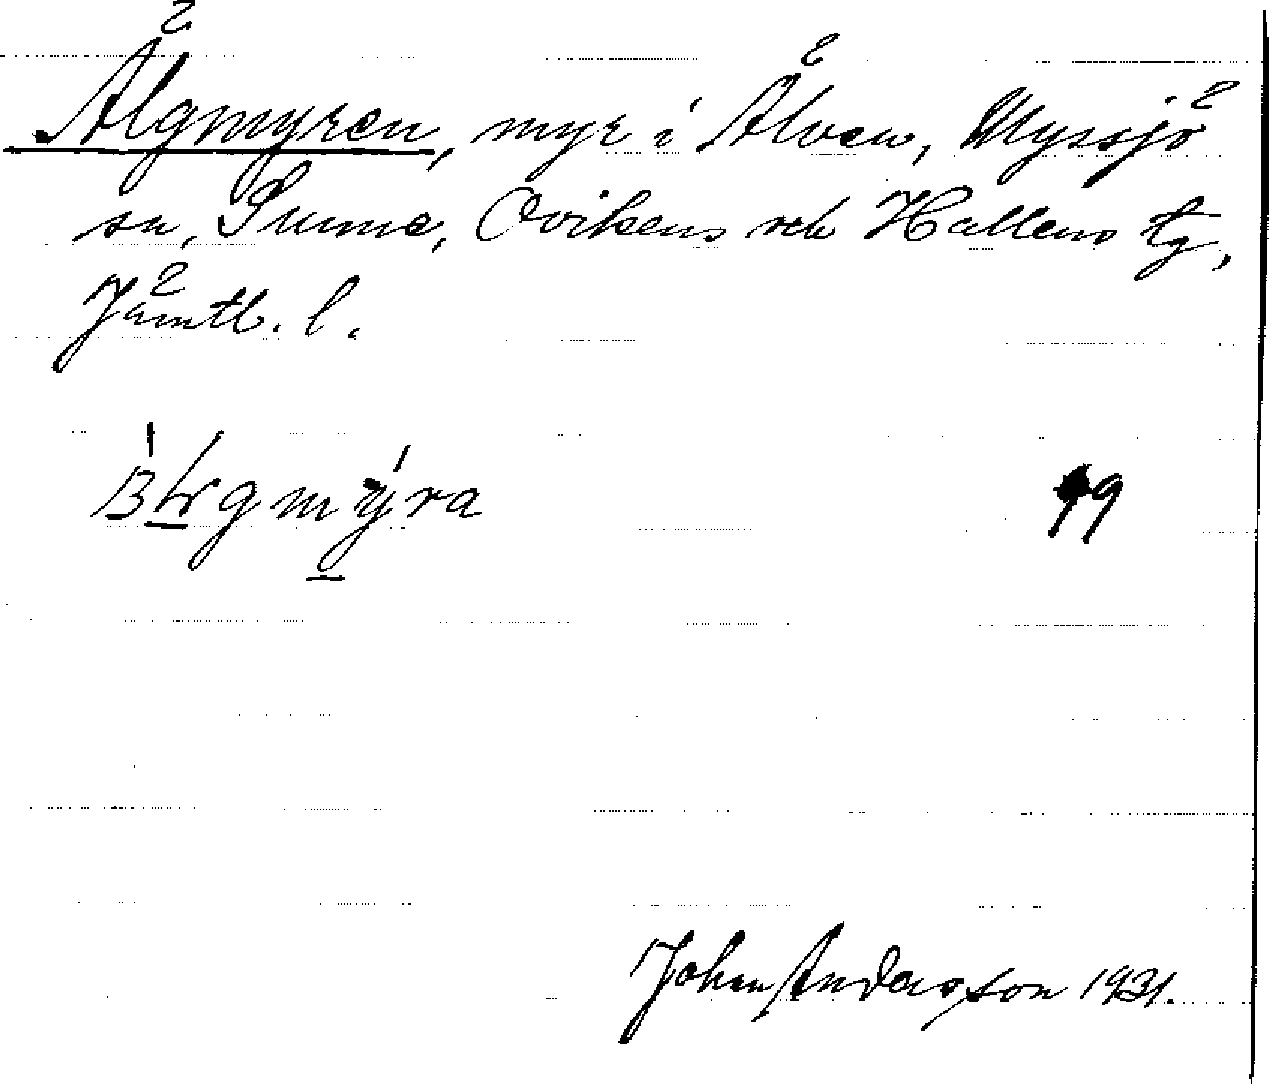 Älgmyren, myr i Älven, Myssjö
sn, Sunne, Ovikens och Hallens tg,
Jämtl. l.
49
Johan Andersson 1931.